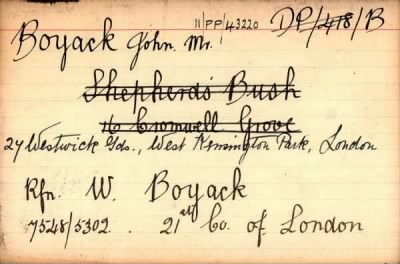 11/PP/43220 DP/418/B
Boyack John. Mr.
Shepherds Bush
16 Cromwell Grove
27 Westwick Gds., West Kensington Park, London
Rfn. W. Boyack
7548/5302. 21st Co. of London